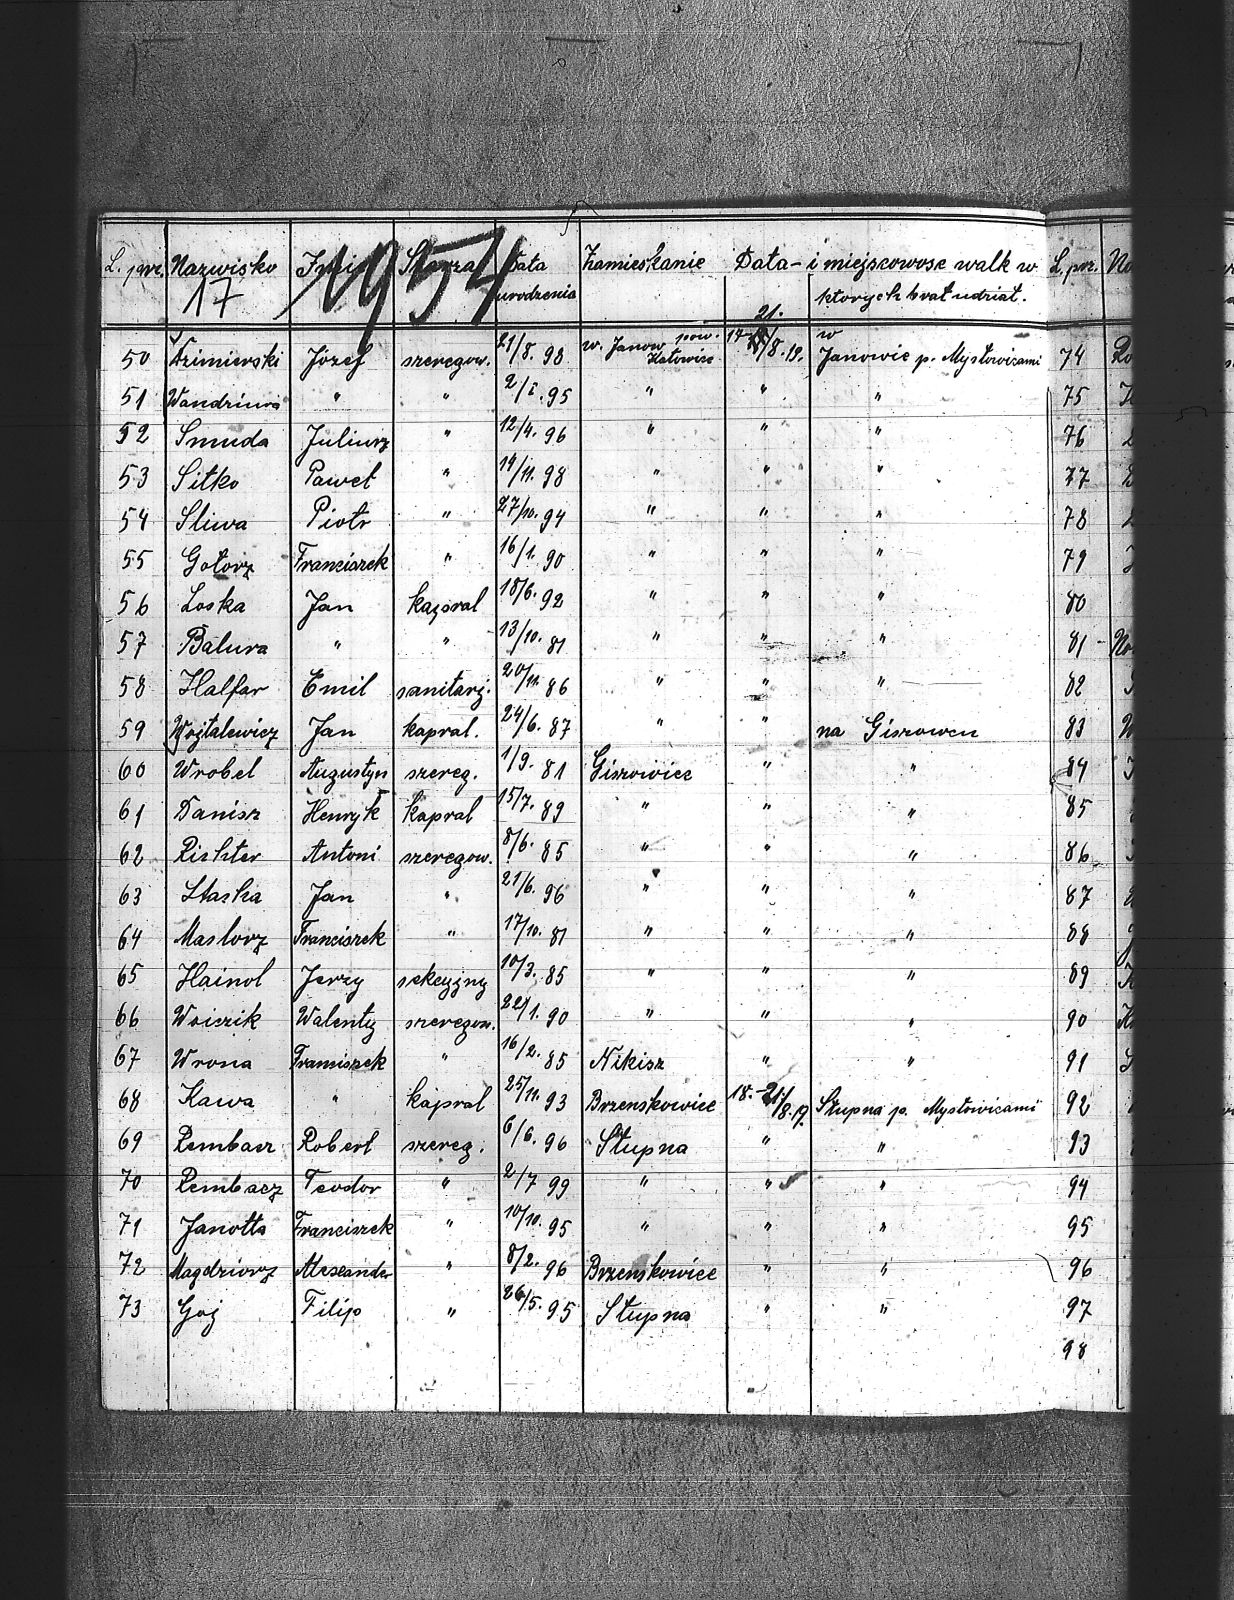 L. porz. Nazwisko Imię Szarża Data Zamieszkanie Data i miejscowosc walk w L. prz. No
17 1954 urodzenia których brał udział.
21.
50 Józef szeregow. 21/8. 98 w. Janow pow. Katowice 17- /8. 19. w Janowie p. Mysłowicami 74
51 " " 2/I. 95 " " " 75
52 Smuda Juliusz " 12/4. 96 " " " 76
53 Sitko Paweł " 14/11. 98 " " " 77
54 Sliwa Piotr " 27/10. 94 " " " 78
55 Gotorz Franciszek " 16/1. 90 " " " 79
56 Loska Jan kapral 18/6. 92 " " " 80
57 Balura " " 13/10. 81 " " " 81 No
58 Halfar Emil sanitarj. 20/11. 86 " " " 82
59 Wojtalewicz Jan kapral. 24/6. 87 " " na Giszowcu 83
60 Wrobel Augustyn szereg. 1/9. 81 Giszowiec " " 84
61 Danisz Henryk kapral 15/7. 89 " " " 85
62 Richter Antoni szeregow. 8/6. 85 " " " 86
63 Staska Jan " 21/6. 96 " " " 87
64 Maslorz Franciszek " 17/10. 81 " " " 88
65 Hainol Jerzy sekcyjny 10/3. 85 " " " 89
66 Woiczik Walenty szeregow. 22/1. 90 " " " 90
67 Wrona Franciszek " 16/2. 85 Nikisz " " 91
68 Kawa " kapral 25/11. 93 Brzenskowice 18.-21/8.19. Słupna p. Mysłowicami 92
69 Rembacz Robert szereg. 6/6. 96 Słupna " " 93
70 Rembacz Teodor " 2/7 99 " " " 94
71 Janotta Franciszek " 10/10. 95 " " " 95
72 Magdziorz Alexander " 8/2. 96 Brzenskowice " " 96
73 Goj Filip " 26/5. 95 Słupna " " 97
98